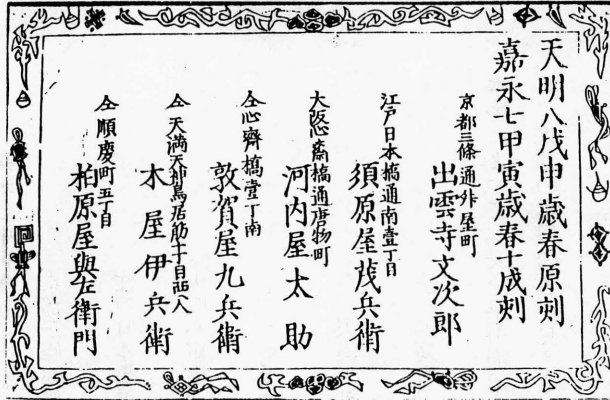 天明八戊申歳春原刻
嘉永七甲寅歳春十成刻
京都三條通舛屋町
出雲寺文次郎
江戸日本橋通南壹丁目
須原屋茂兵衛
大阪心齋橋通唐物町
河内屋太助
仝心齊橋壹丁南
敦賀屋九兵衛
仝天満天神鳥居筋十丁目西へ入
木屋伊兵衛
仝順慶町五丁目
柏原屋與左衛門